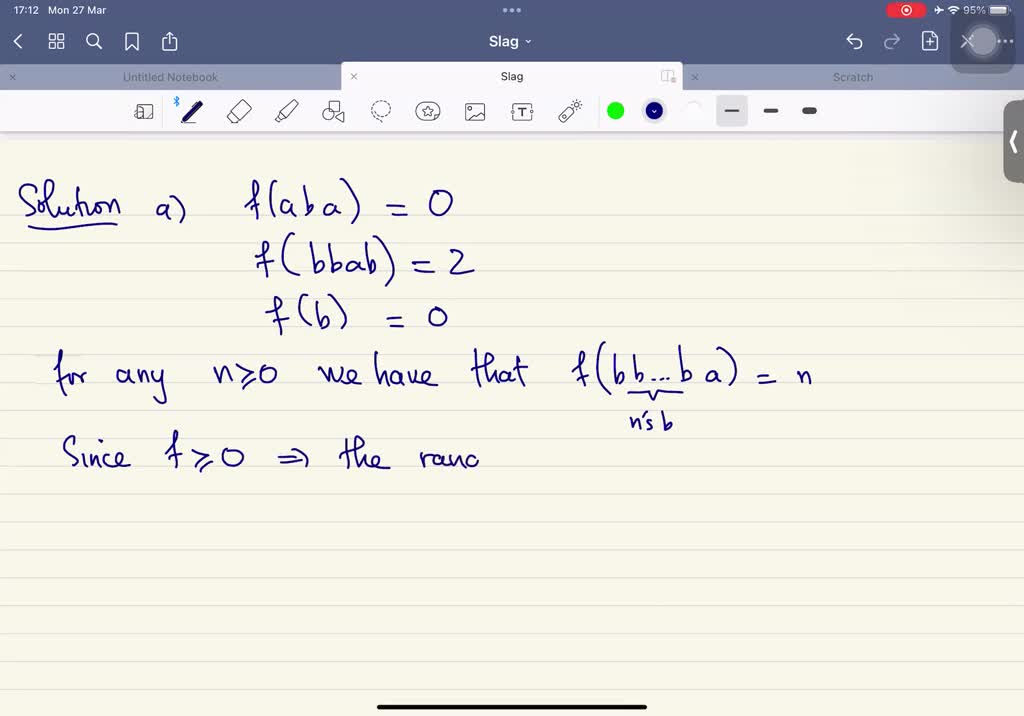 17:12 Mon 27 Mar
95%
Slag
Untitled Notebook
Slag
Scratch
Solution a) f(aba) = 0
f(bbab) = 2
f(b) = 0
for any n≥0 we have that f(bb...ba) = n
n's b
Since f≥0 ⇒ the rang